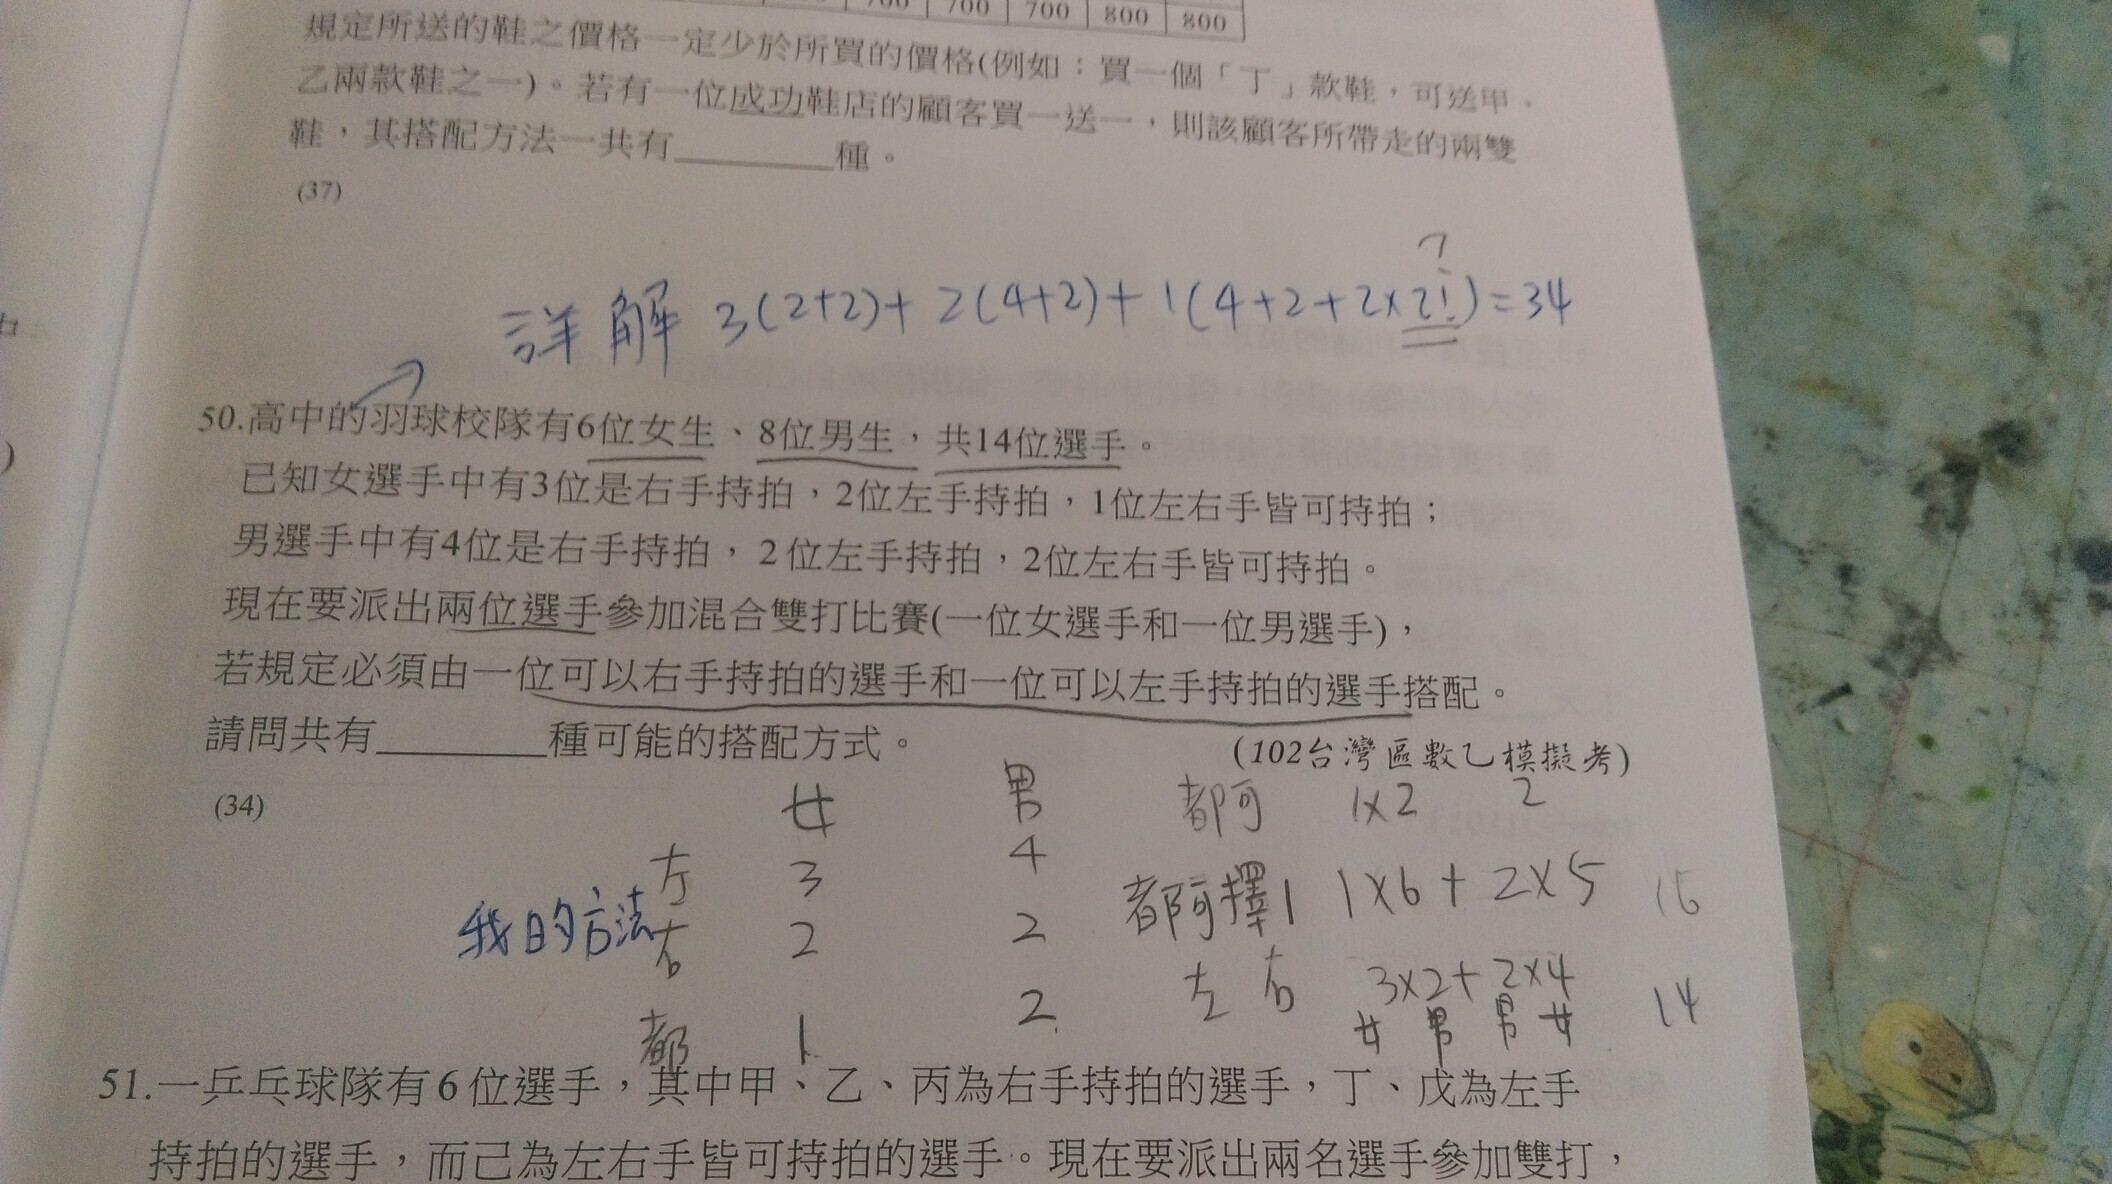 700 700 700 800 800
規定所送的鞋之價格一定少於所買的價格(例如：買一個「丁」款鞋，可送甲、
乙兩款鞋之一)。若有一位成功鞋店的顧客買一送一，則該顧客所帶走的兩雙
鞋，其搭配方法一共有________種。
(37)
?
詳解 3(2+2)+2(4+2)+1(4+2+2×2!)=34
50.高中的羽球校隊有6位女生、8位男生，共14位選手。
已知女選手中有3位是右手持拍，2位左手持拍，1位左右手皆可持拍；
男選手中有4位是右手持拍，2位左手持拍，2位左右手皆可持拍。
現在要派出兩位選手參加混合雙打比賽(一位女選手和一位男選手)，
若規定必須由一位可以右手持拍的選手和一位可以左手持拍的選手搭配。
請問共有________種可能的搭配方式。
(102台灣區數乙模擬考)
(34)
女 男 都可 1×2 2
左 3 4 都可擇1 1×6+2×5 16
我的方法
右 2 2 左 右 3×2+2×4 14
女 男 男 女
都 1 2
51.一乒乓球隊有6位選手，其中甲、乙、丙為右手持拍的選手，丁、戊為左手
持拍的選手，而己為左右手皆可持拍的選手。現在要派出兩名選手參加雙打，